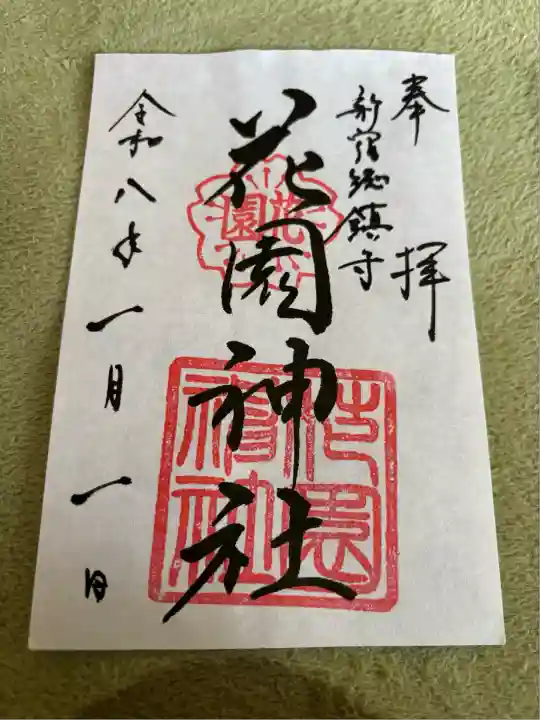 奉拝
新宿総鎮守
花園神社
花園
花園神社
令和八年一月一日